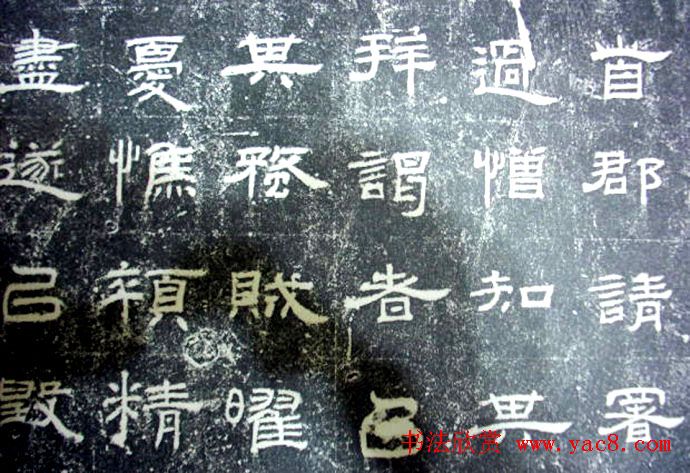 首郡請署
過憎知其
拜謁者已
其務賊曜
憂憔顇精
盡遂已毀
书法欣赏 www.yac8.com